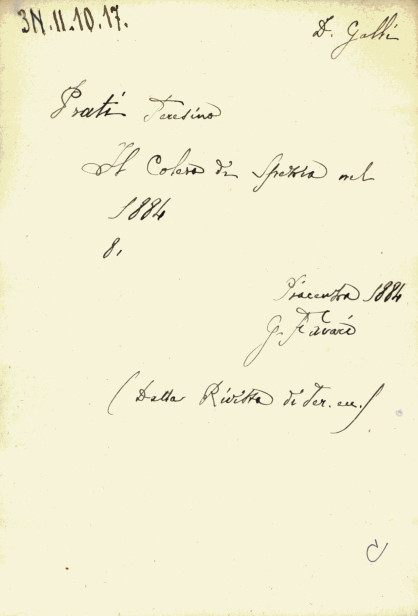 3N.11.10.17.
D. Galli
Prati Teresino
Il Colera di Spezia nel
1884
8,
Piacenza 1884
G. Favari
(Dalla Rivista di Ter. )